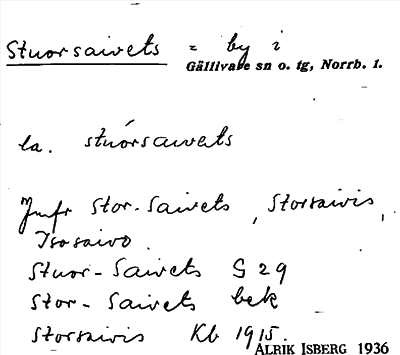 Stuorsaivets = by i
Gällivare sn o. tg, Norrb. l.
la. stuórsaivets
Jmfr Stor-Saivets, Storsaivis,
Isosaivo.
Stuor-Saivets G 29
Stor-Saivets bek
Storsaivis Kb 1915.
ALRIK ISBERG 1936